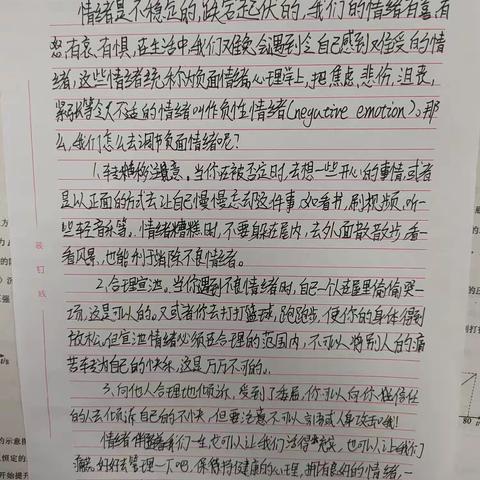 情绪是不稳定的,跌宕起伏的,我们的情绪有喜,有
怒,有哀,有惧,在生活中,我们难免会遇到令自己感到难受的情
绪,这些情绪统称为负面情绪,心理学上,把焦虑、悲伤、沮丧、
紧张等令人不适的情绪叫作负性情绪(negative emotion)。那
么,我们怎么去调节负面情绪呢?
1.转移注意。当你还被否定时,去想一些开心的事情,或者
是以正面的方式去让自己慢慢忘去那这件事,如看书,刷视频、听
一些轻音乐等。情绪糟糕时,不要躲在屋内,去外面散散步,看一
看风景,也能利于消除不良情绪。
2.合理宣泄。当你遇到不良情绪时,自己一个人在屋里偷偷哭一
场,这是可以的。又或者你去打打篮球,跑跑步,使你的身体得到
放松。但宣泄情绪必须在合理的范围内,不可以将别人的痛
苦转变为自己的快乐,这是万万不可的。
3.向他人合理地倾诉,受到了委屈,你可以向你相信任
的人去倾诉自己的不快,但要注意不可以言语或人身攻击哦!
情绪伴随着我们一生,它可以让我们活得充实,也可以让我们
痛苦,好好去管理一下吧,保持持健康的心理,拥有良好的情绪,一
装
订
线
80